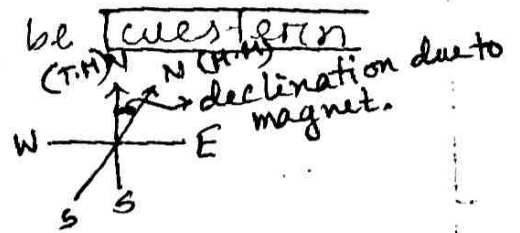 be western
(T.M) N N (M.M)
declination due to
magnet.
W E
S S